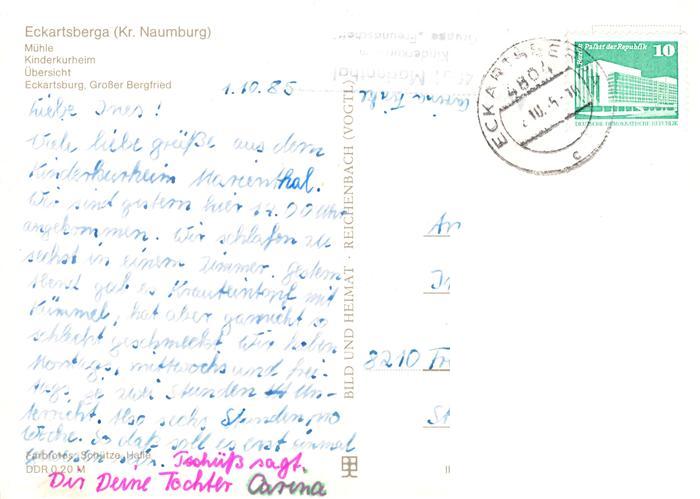 Eckartsberga (Kr. Naumburg)
Mühle
Kinderkurheim
Übersicht
Eckartsburg, Großer Bergfried
1.10.85
Liebe Ines!
Viele liebe grüße aus dem
Kinderkurheim Marienthal.
Wir sind gestern hier 17.00 Uhr
angekommen. Wir schlafen zu
sechst in einem Zimmer. gestern
Abend gab es Krauteintopf mit
Kümmel, hat aber garnicht so
schlecht geschmeckt. Wir haben
Montags, mittwochs und frei-
tags je zwei Stunden Un-
terricht. Also sechs Stunden, pro
Woche. So daß soll es erst einmal
gewesen sein. Tschüß sagt
Dir Deine Tochter Carina
Farbfotos: Schütze, Halle
DDR 0,20 M
BILD UND HEIMAT · REICHENBACH (VOGTL)
Gruppe „Freundschaft"
Kinderkurheim
Marienthal
Carina
An
8210 Fr
St
ECKARTSBE
4804
c
Berlin, Palast der Republik
10
DEUTSCHE DEMOKRATISCHE REPUBLIK